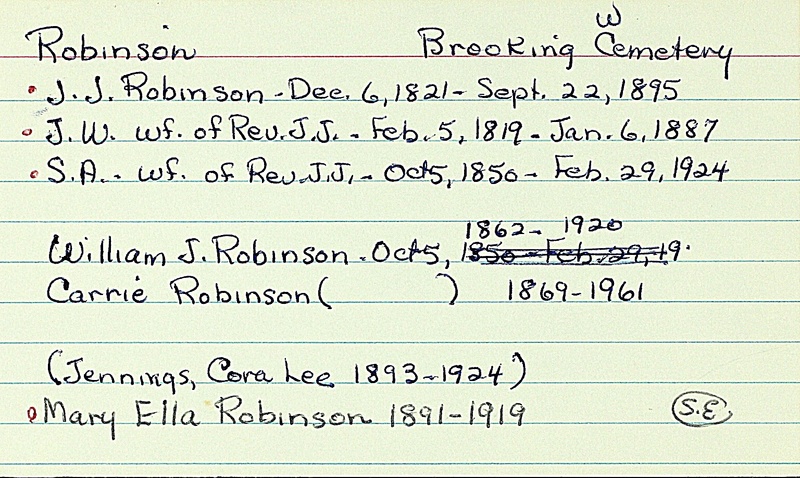 W
Robinson Brooking Cemetery
J.J. Robinson - Dec. 6, 1821 - Sept. 22, 1895
J.W. wf. of Rev. J.J. - Feb. 5, 1819 - Jan. 6, 1887
S.A. - wf. of Rev. J.J. - Oct 5, 1850 - Feb. 29, 1924
1862 - 1920
William J. Robinson - Oct 5, 1850 - Feb. 29, 19
Carrie Robinson ( ) 1869-1961
(Jennings, Cora Lee 1893-1924)
Mary Ella Robinson 1891-1919 S.E